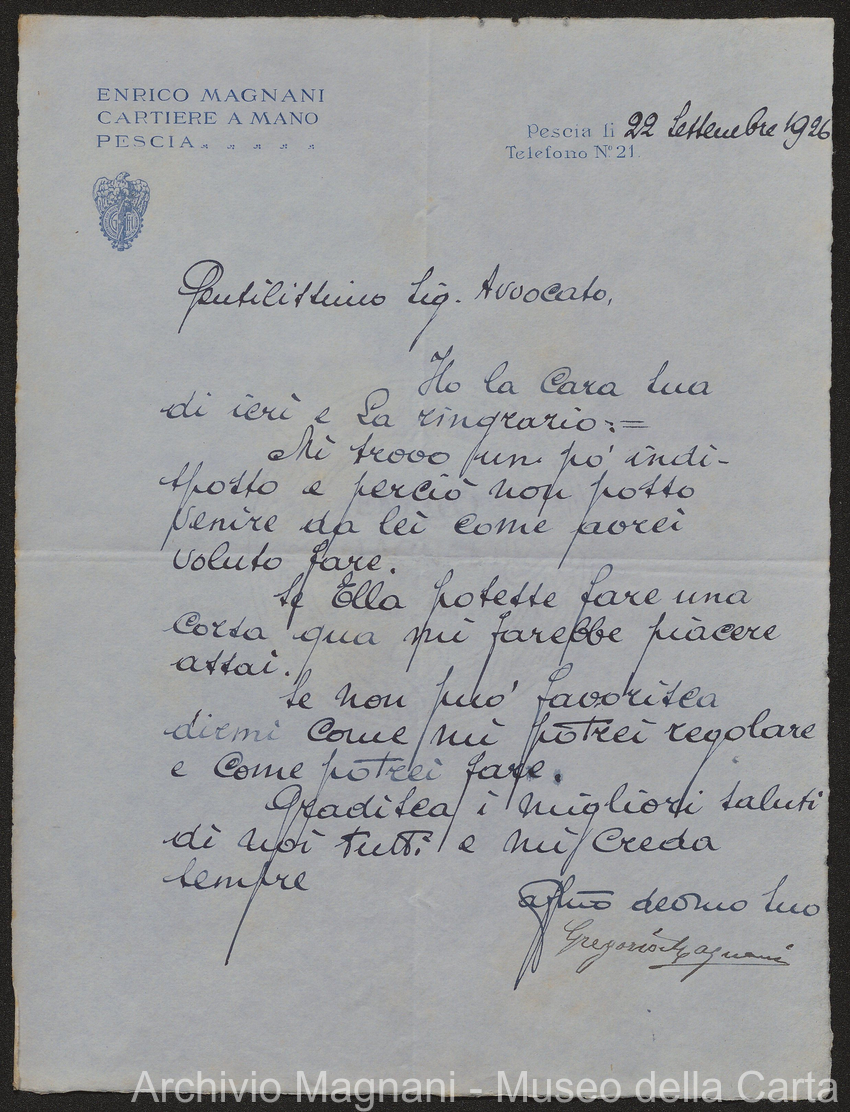 ENRICO MAGNANI
CARTIERE A MANO
PESCIA
Pescia li 22 Settembre 1926
Telefono Nº 21.
Gentilissimo Sig. Avvocato,
Ho la Cara Sua
di ieri e La ringrazio:=
Mi trovo un pò indi-
sposto e perciò non posso
venire da lei come avrei
voluto fare.
Se Ella potesse fare una
Corsa qua mi farebbe piacere
assai.
Se non può favorisca
dirmi Come mi potrei regolare
e Come potrei fare.
Gradisca i migliori saluti
di noi tutti e mi Creda
sempre
affmo devmo Suo
Gregorio Magnani
Archivio Magnani - Museo della Carta